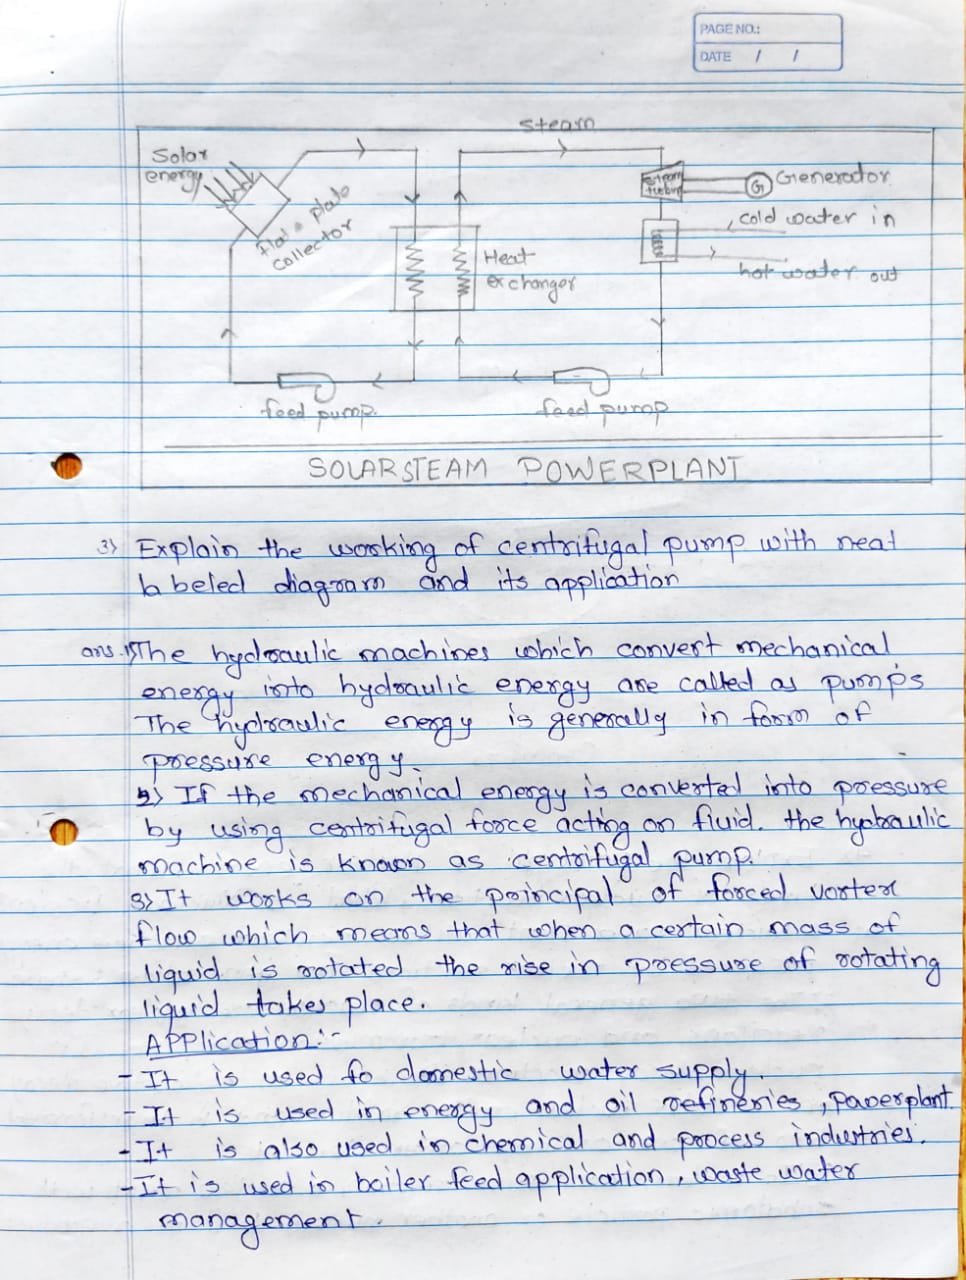 PAGE NO.:
DATE / /
steam
Solar
energy
Flat plate
collector
Heat
exchanger
steam
turbin
G Generator
cold water in
hot water out
feed pump.
feed pump
SOLAR STEAM POWERPLANT
3) Explain the working of centrifugal pump with neat
labeled diagram and its application
ans. 1) The hydraulic machines which convert mechanical
energy into hydraulic energy are called as pumps
The hydraulic energy is generally in form of
pressure energy.
2) If the mechanical energy is converted into pressure
by using centrifugal force acting on fluid. the hydraulic
machine is known as centrifugal pump.
3) It works on the principal of forced vortex
flow which means that when a certain mass of
liquid is rotated the rise in pressure of rotating
liquid takes place.
Application:-
- It is used fo domestic water supply.
- It is used in energy and oil refineries, powerplant.
- It is also used in chemical and process industries.
- It is used in boiler feed application, waste water
management.